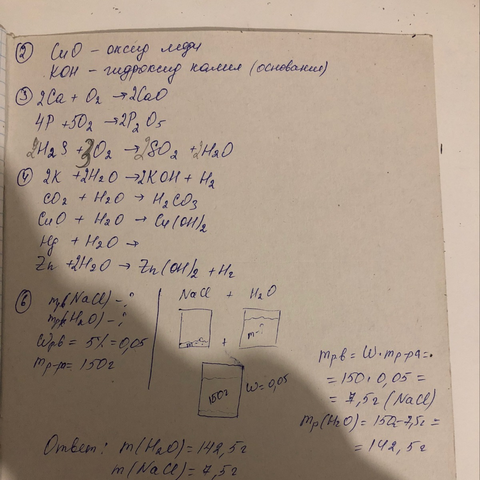 ② CuO – оксид меди
KOH – гидроксид калия (основания)
③ 2Ca + O₂ → 2CaO
4P + 5O₂ → 2P₂O₅
2H₂S + 3O₂ → 2SO₂ + 2H₂O
④ 2K + 2H₂O → 2KOH + H₂
CO₂ + H₂O → H₂CO₃
CuO + H₂O → Cu(OH)₂
Hg + H₂O →
Zn + 2H₂O → Zn(OH)₂ + H₂
⑥ mрв(NaCl) – ?
mрв(H₂O) – ?
Wрв = 5% = 0,05
mр-р = 150г
NaCl + H₂O
m-?
+
m-?
150г
W=0,05
mрв = W · mр-ра =
= 150 · 0,05 =
= 7,5г (NaCl)
mр(H₂O) = 150 – 7,5г =
= 142,5г
Ответ: m(H₂O) = 142,5г
m(NaCl) = 7,5г